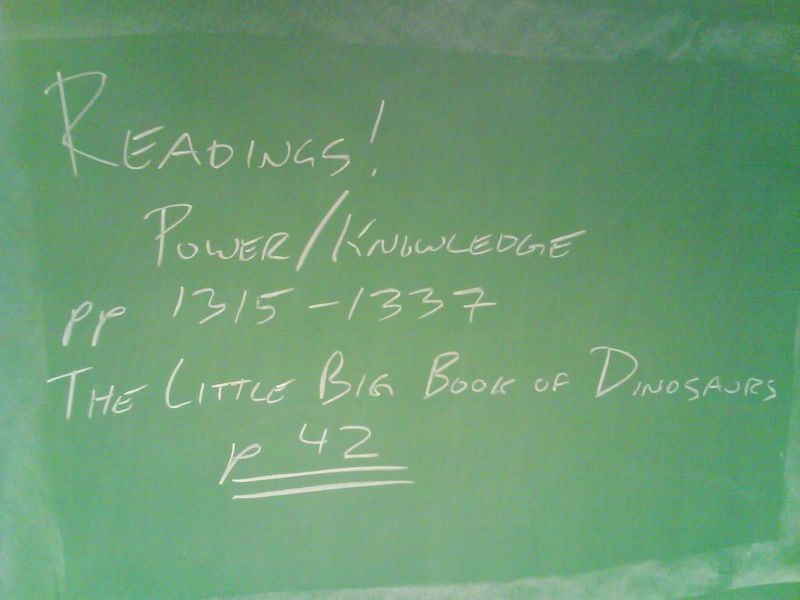 READINGS!
POWER/KNOWLEDGE
pp 1315-1337
THE LITTLE BIG BOOK OF DINOSAURS
p 42